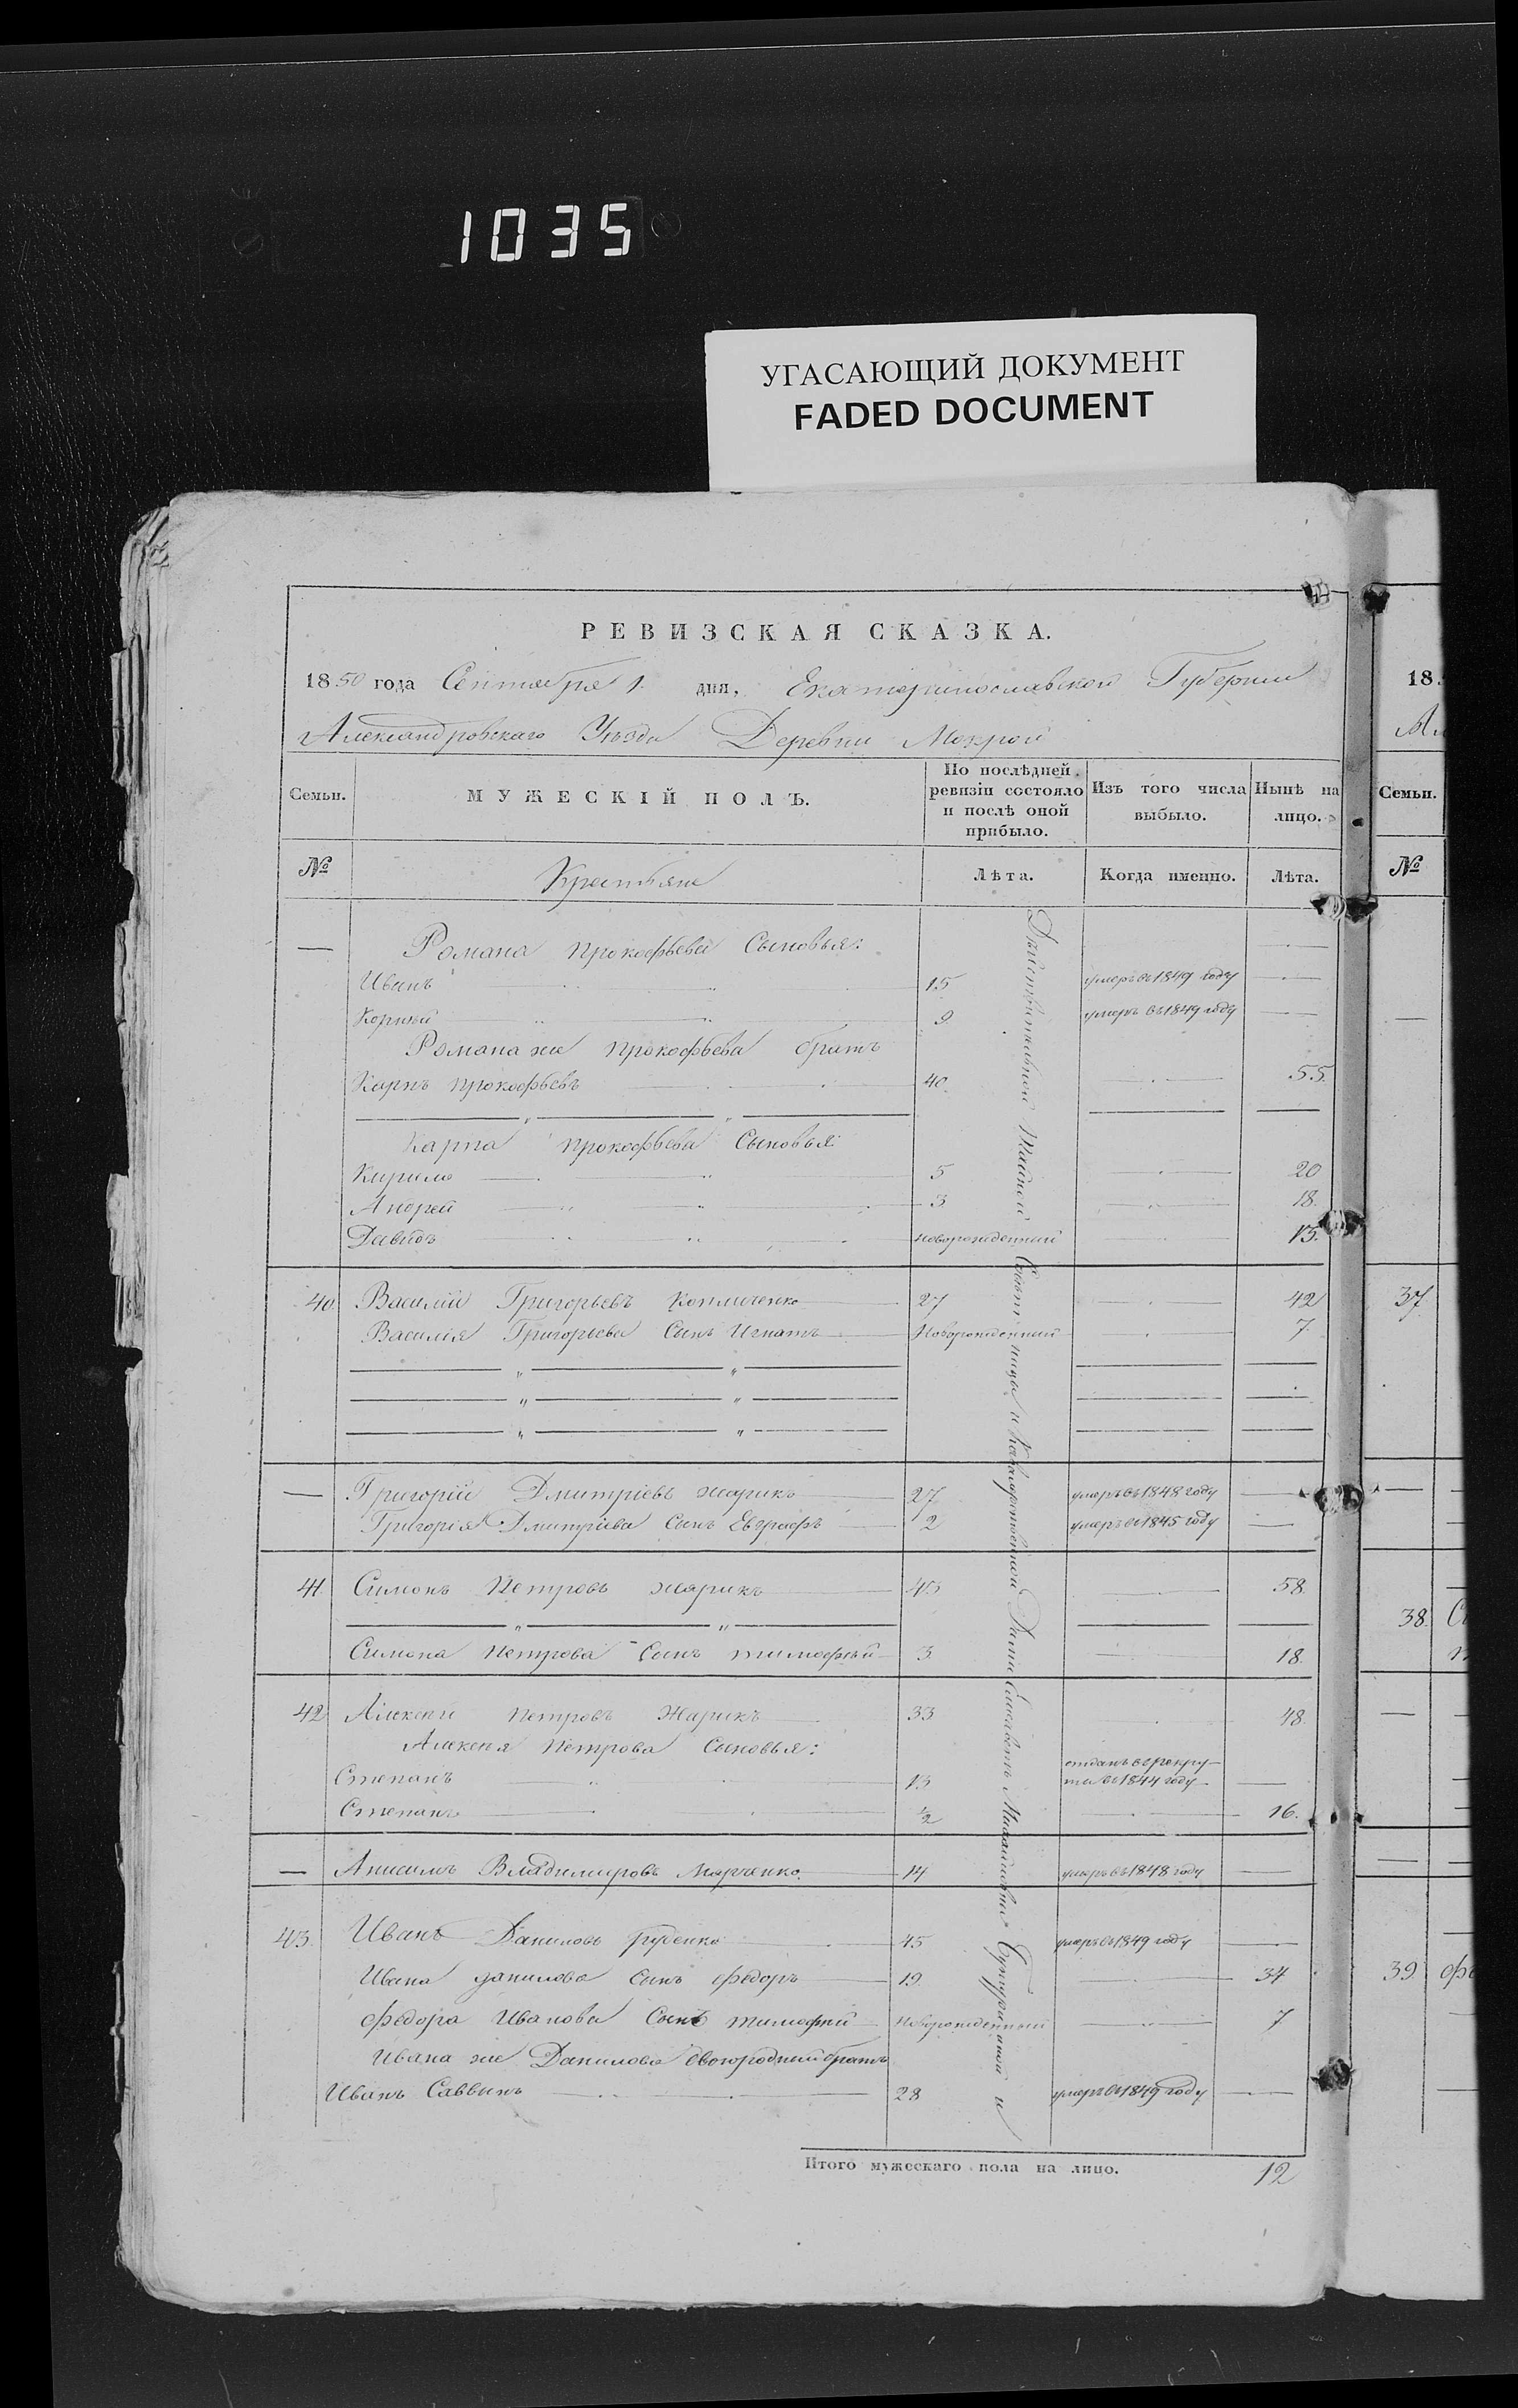 1035
УГАСАЮЩИЙ ДОКУМЕНТ
FADED DOCUMENT
РЕВИЗСКАЯ СКАЗКА.
1850 года Сентября 1 дня, Екатеринославской Губернии
Александровскаго Уѣзда Деревни Мокрой
Семьи. МУЖЕСКІЙ ПОЛЪ. По послѣдней ревизіи состояло и послѣ оной прибыло. Изъ того числа выбыло. Нынѣ на лицо.
№ Крестьяне Лѣта. Когда именно. Лѣта.
— Романа Прокофьева Сыновья:
Иванъ 15 умеръ въ 1849 году —
Корнѣй 9 умеръ въ 1849 году —
Романа же Прокофьева братъ
Карпъ Прокофьевъ 40. — 55.
Карпа Прокофьева Сыновья:
Кирило 5 — 20
Андрей 3 — 18.
Давидъ новорожденный — 15.
40. Василій Григорьевъ 27 — 42
Василія Григорьева Сынъ Игнатъ Новорожденный — 7.
— Григорій Дмитріевъ Жарикъ 27 умеръ въ 1848 году —
Григорія Дмитріева Сынъ Евграфъ 2 умеръ въ 1845 году —
41 Симонъ Петровъ Жарикъ 43 — 58.
Симона Петрова Сынъ Тимофѣй 3. — 18.
42 Алексѣй Петровъ Жарикъ 33 — 48.
Алексѣя Петрова Сыновья:
Степанъ 13 отданъ въ рекруты въ 1844 году —
Степанъ ½ — 16.
— Анисимъ Владимировъ Марченко. 14 умеръ въ 1848 году —
43. Иванъ Даниловъ Руденко 45 умеръ въ 1849 году —
Ивана Данилова Сынъ Федоръ 19. — 34
Федора Иванова Сынъ Тимофѣй Новорожденный — 7
Ивана же Данилова двоюродный братъ
Иванъ Саввинъ 28 умеръ въ 1849 году —
Итого мужескаго пола на лицо. 12
Дѣйствительной Тайной Совѣтницы и Кавалерственной Дамы Елисаветы Михайловны и
18
Семьи.
№
37
38
39